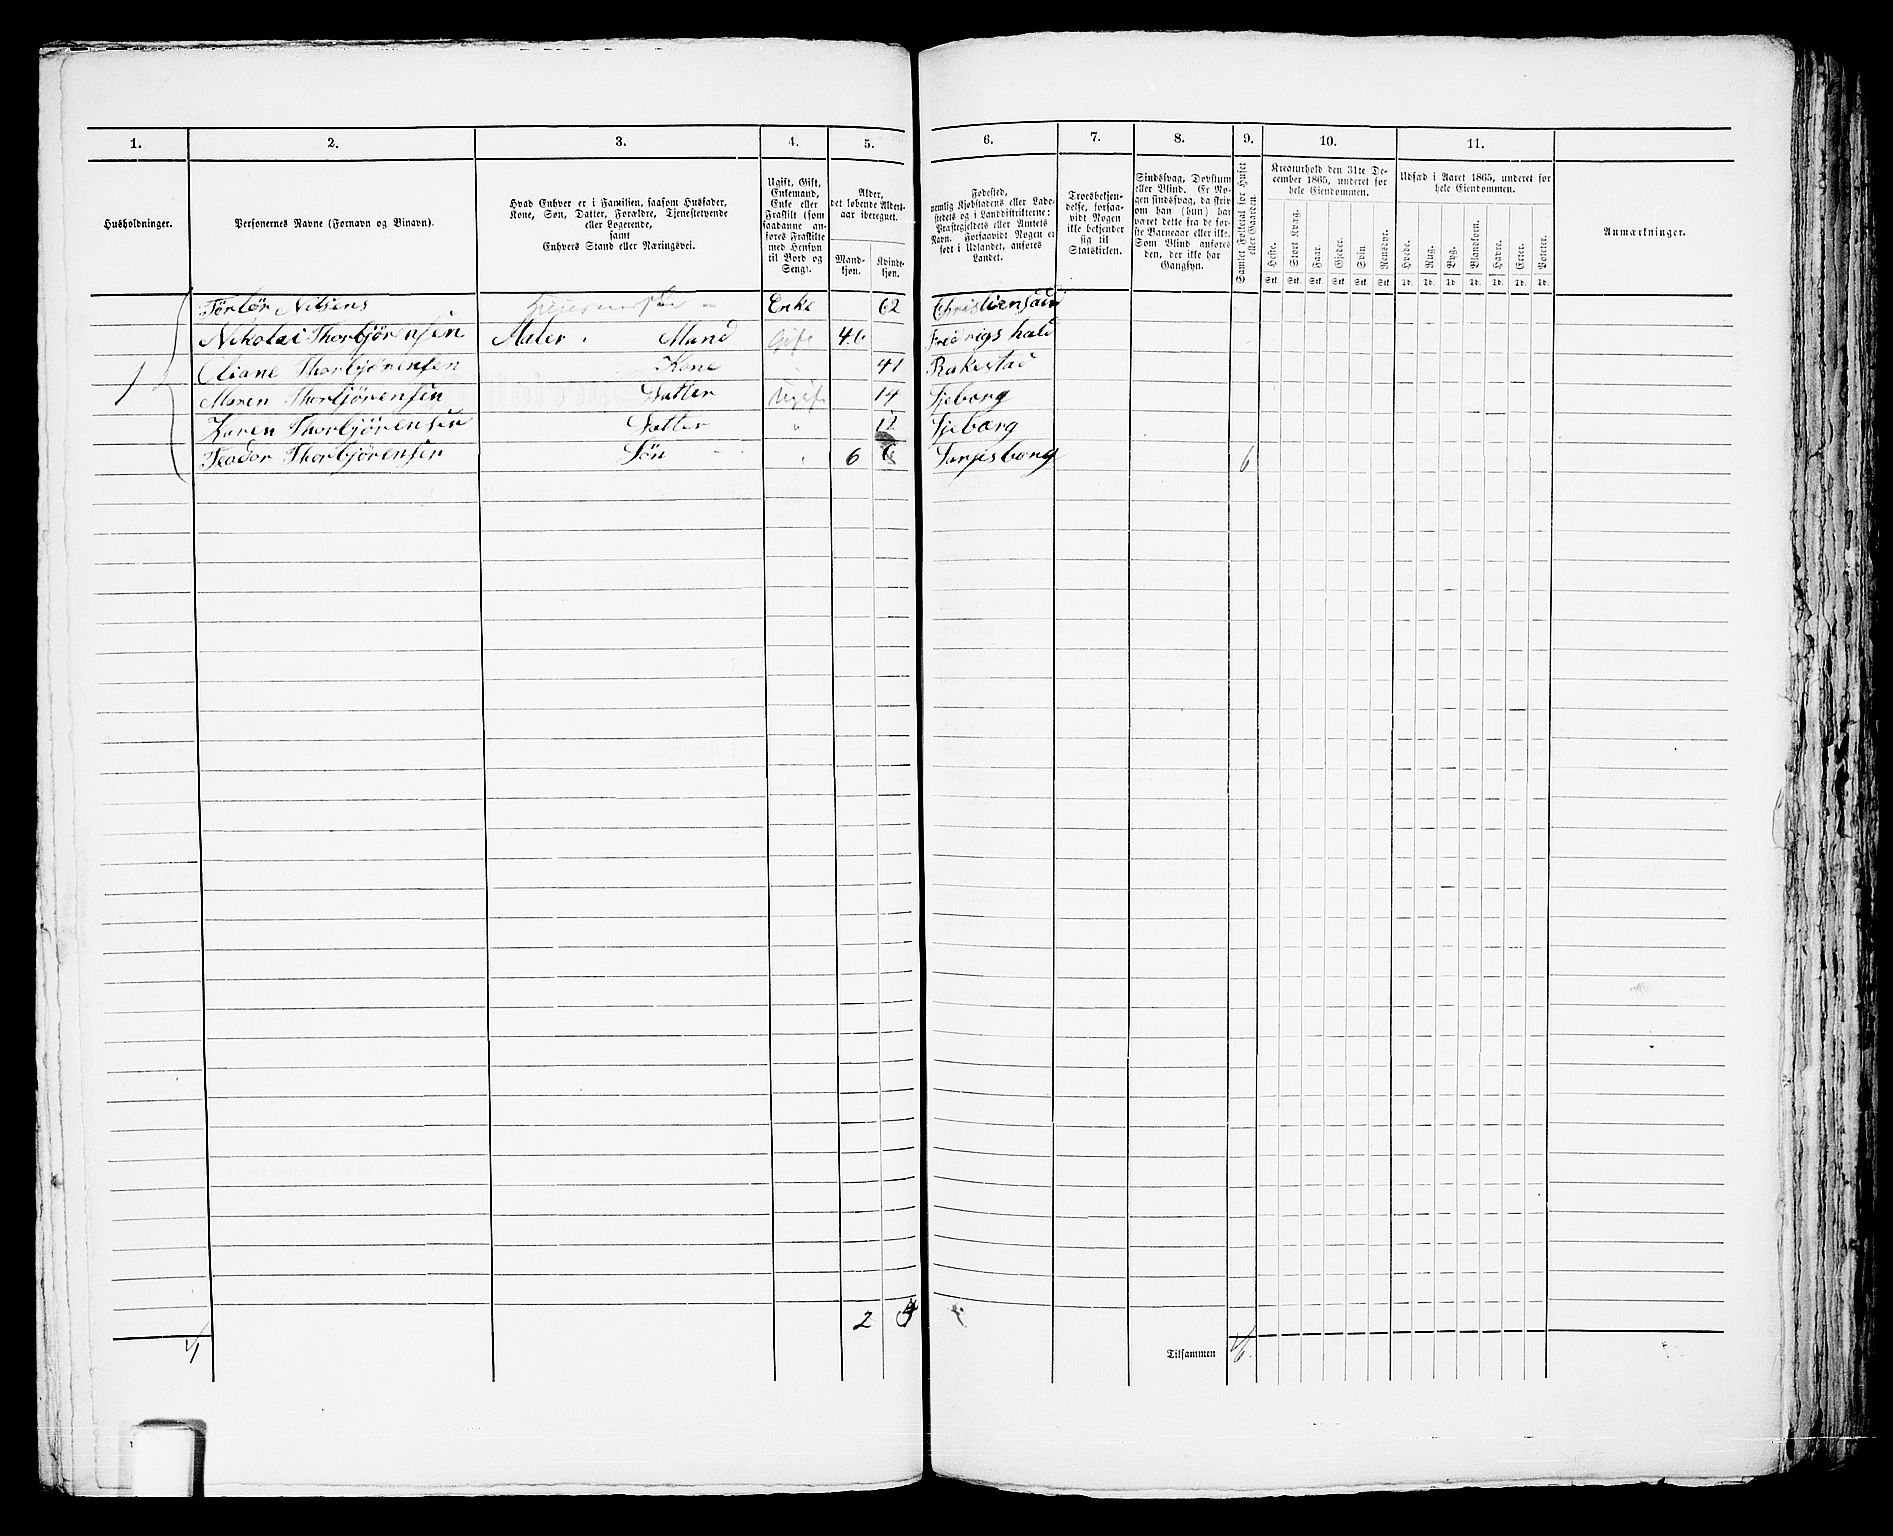 1. 2. 3. 4. 5. 6. 7. 8. 9. 10. 11.
Husholdninger.
Personernes Navne (Fornavn og Binavn).
Hvad Enhver er i Familien, saasom Husfader,
Kone, Søn, Datter, Forældre, Tjenestetyende
eller Logerende,
samt
Enhvers Stand eller Næringsvei.
Ugift, Gift,
Enkemand,
Enke eller
Fraskilt (som
saadanne an-
føres Fraskilte
med Hensyn
til Bord og
Seng).
Alder,
det løbende Alders-
aar iberegnet.
Mand-
kjøn.
Kvinde-
kjøn.
Fødested,
nemlig Kjøbstadens eller Lade-
stedets og i Landdistrikterne:
Præstegjeldets eller Amtets
Navn. Forsaavidt Nogen er
født i Udlandet, anføres
Landet.
Troesbekjen-
delse, forsaa-
vidt Nogen
ikke bekjender
sig til
Statskirken.
Sindssvag, Døvstum
eller Blind. Er No-
gen sindssvag, da skriv
om han (hun) har
været dette fra de før-
ste Barneaar eller ikke.
Som Blind anføres
den, der ikke har
Gangsyn.
Samlet Folketal for Huset
eller Gaarden.
Kreaturhold den 31te De-
cember 1865, underet for
hele Eiendommen.
Heste. Stort Kvæg. Faar. Gjeder. Svin Rensdyr.
Stk. Stk. Stk. Stk. Stk. Stk.
Udsæd i Aaret 1865, underet for
hele Eiendommen.
Hvede. Rug. Byg. Blandkorn. Havre. Erter. Poteter.
Td. Td. Td. Td. Td. Td. Td.
Anmærkninger.
Nilsens Enke 62 Christiensand
1 Nikolai Thorbjørensen Maler Mand Gift 46 Fredrigshald
Oliane Thorbjørensen Kone 41 Rakestad
Maren Thorbjørensen Datter Ugift 14 Sjeborg
Karen Thorbjørensen Datter " 12 Sjeborg
Teodor Thorbjørensen Søn " 6 Sarpsborg 6
2 4
1 Tilsammen 6